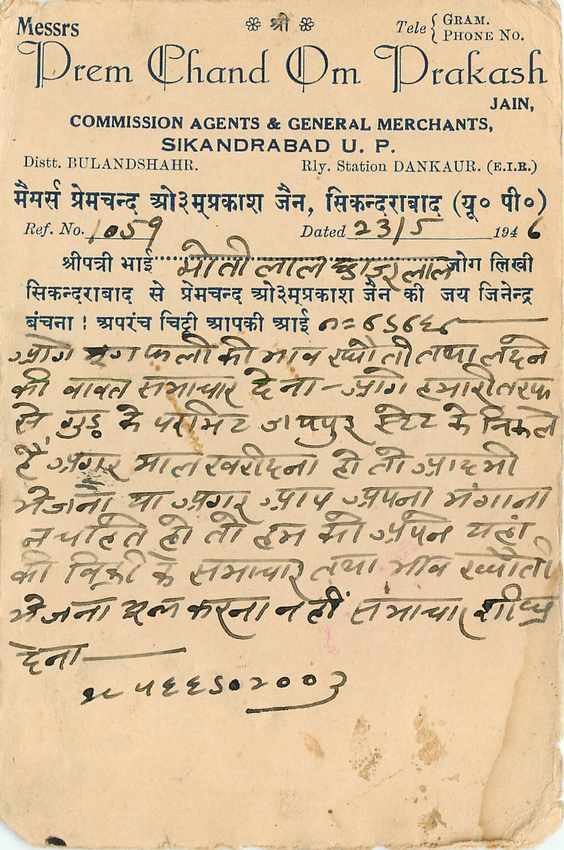 Messrs
❁ श्री ❁
Tele { GRAM.
PHONE NO.
Prem Chand Om Prakash
JAIN,
COMMISSION AGENTS & GENERAL MERCHANTS,
SIKANDRABAD U. P.
Distt. BULANDSHAHR. Rly. Station DANKAUR. (E.I.R.)
मैसर्स प्रेमचन्द ओ३म्प्रकाश जैन, सिकन्दराबाद (यू० पी०)
Ref. No. 1059 Dated 23/5 1946
श्रीपत्री भाई मोती लाल लाल जोग लिखी
सिकन्दराबाद से प्रेमचन्द ओ३म्प्रकाश जैन की जय जिनेन्द्र
बंचना ! अपरंच चिट्ठी आपकी आई
फली की भाव तथा
की बाबत समाचार देना – आगे हमारी तरफ
से गुड़ के परमिट जयपुर स्टेट के निकले
हैं अगर माल खरीदना हो तो आदमी
भेजना या अगर आप अपना मंगाना
न चाहते हो तो हम को अपने यहां
की बिक्री के समाचार तथा भाव
भेजना करना नहीं समाचार शीघ्र
देना